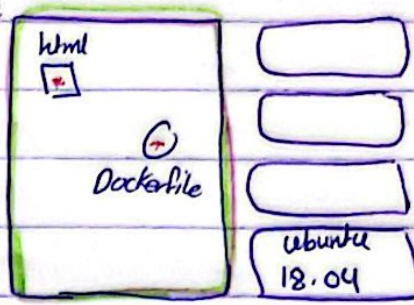 html
Dockerfile
ubuntu
18.04